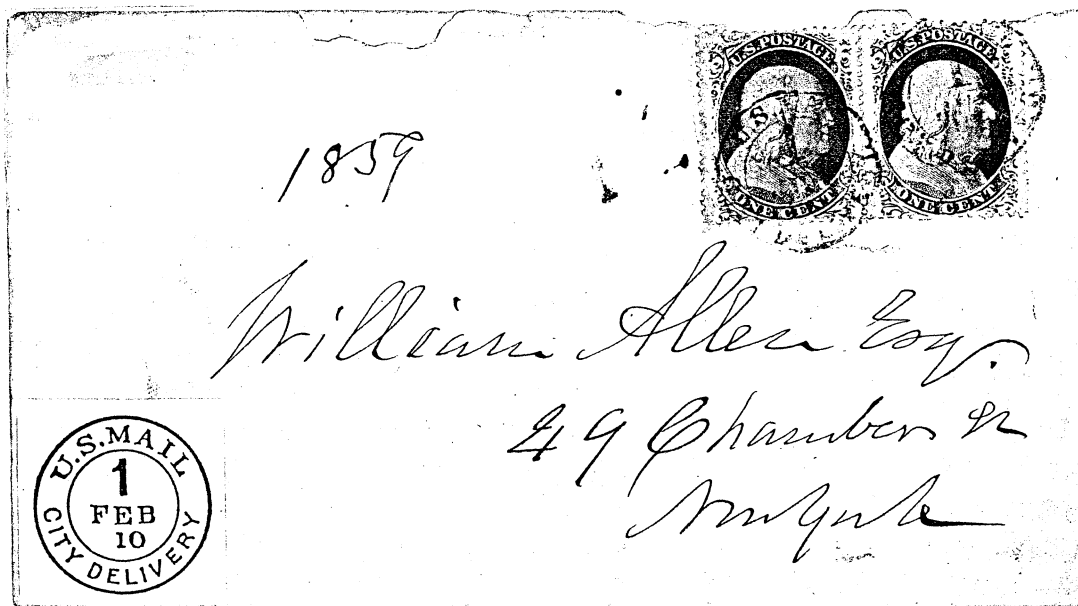 U.S. POSTAGE
ONE CENT
U.S. POSTAGE
ONE CENT
1859
William Allen Esq.
49 Chambers St
New York
U.S. MAIL
1
FEB
10
CITY DELIVERY